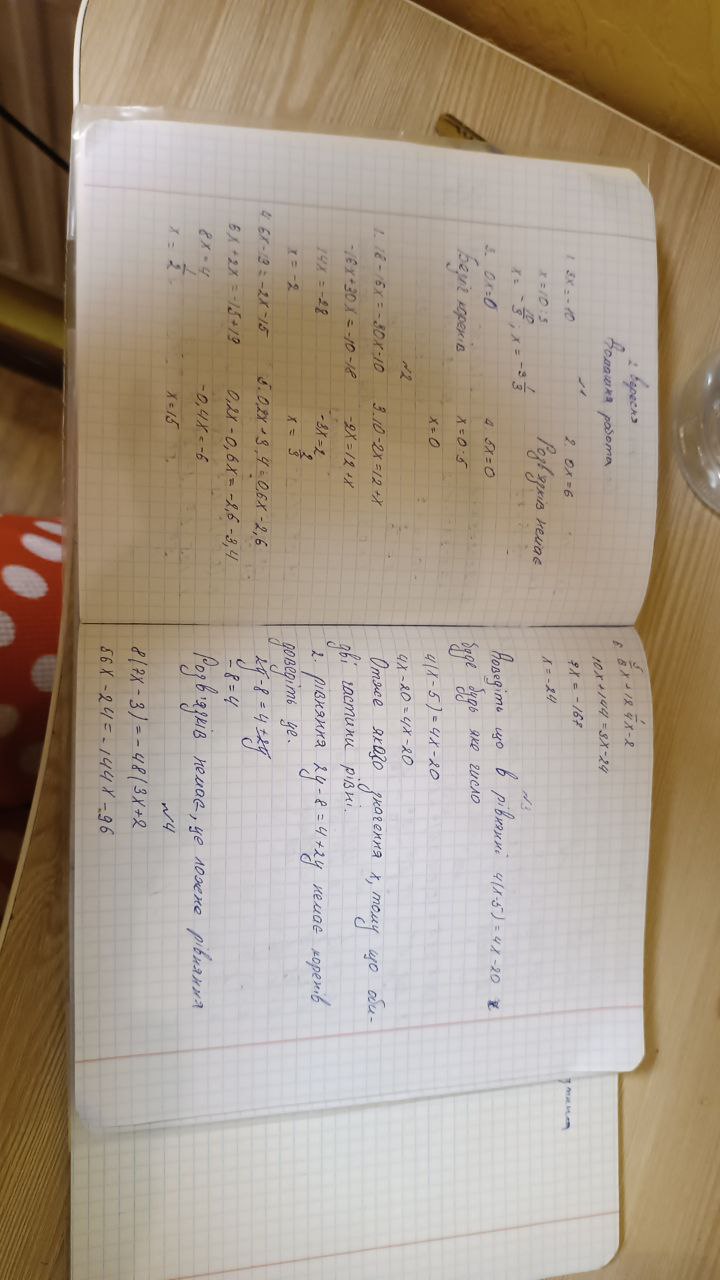 2 вересня
Домашня робота
№1
1. 3x = -10
x = 10 : 3
x = -10/3, x = -3 1/3
2. 0x = 6
Розв'язків немає
3. 0x = 0
Безліч коренів
4. 5x = 0
x = 0 · 5
x = 0
№2
1. 18 - 16x = -30x - 10
-16x + 30x = -10 - 18
14x = -28
x = -2
3. 10 - 2x = 12 + x
-2x = 12 + x
-3x = 2
x = 2/3
4. 6x - 19 = -2x - 15
6x + 2x = -15 + 19
8x = 4
x = 1/2
5. 0,2x + 3,4 = 0,6x - 2,6
0,2x - 0,6x = -2,6 - 3,4
-0,4x = -6
x = 15
10x + 144 = 3x - 24
7x = -167
x = -24
№3
Доведіть що в рівнянні 4(x - 5) = 4x - 20
буде будь яке число
4(x - 5) = 4x - 20
4x - 20 = 4x - 20
Отже якого значення x, тому що оби-
дві частини рівні.
2. рівняння 2y - 8 = 4 + 2y немає коренів
доведіть це.
2y - 8 = 4 + 2y
-8 = 4
Розв'язків немає, це ложене рівняння
№4
8(7x - 3) = -48(3x + 2
56x - 24 = -144x - 96